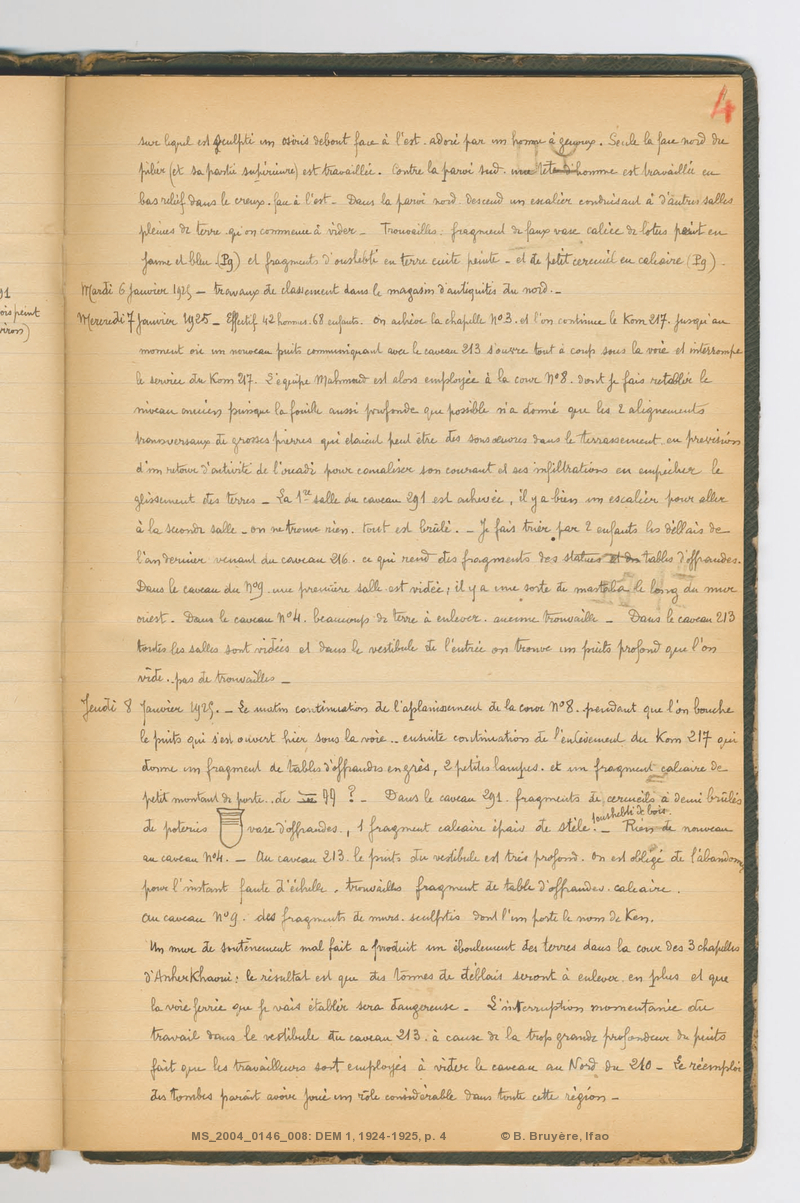 4
sur lequel est sculpté un osiris debout face à l'est. adoré par un homme à genoux. Seule la face nord du
pilier (et sa partie supérieure) est travaillée. Contre la paroi sud. une tête d'homme est travaillée en
bas relief dans le creux. face à l'est - Dans la paroi nord. descend un escalier conduisant à d'autres salles
pleines de terre qu'on commence à vider - Trouvailles: fragment de faux vase calice de lotus peint en
jaune et bleu (Pg) et fragments d'oushebti en terre cuite peinte - et de petit cercueil en calcaire (Pg) -
Mardi 6 Janvier 1925 - travaux de classement dans le magasin d'antiquités du nord. -
91
Mercredi 7 Janvier 1925 - Effectif 42 hommes. 68 enfants. On achève la chapelle N°3. et l'on continue le Kom 217. Jusqu'au
ois peint
viron)
moment où un nouveau puits communiquant avec le caveau 213 s'ouvre tout à coup sous la voie et interrompe
le service du Kom 217. L'équipe Mahmoud est alors employée à la cour N°8. dont je fais rétablir le
niveau ancien puisque la fouille aussi profonde que possible n'a donné que les 2 alignements
transversaux de grosses pierres qui étaient peut être des sous œuvres dans le terrassement en prévision
d'un retour d'activité de l'ouadi pour canaliser son courant et ses infiltrations en empêcher le
glissement des terres - La 1re salle du caveau 291 est achevée, il y a bien un escalier pour aller
à la seconde salle - on ne trouve rien. tout est brûlé. - Je fais trier par 2 enfants les déblais de
l'an dernier venant du caveau 216. ce qui rend des fragments des statues et de tables d'offrandes.
Dans le caveau du N°9 une première salle est vidée; il y a une sorte de mastaba le long du mur
ouest - Dans le caveau N°4. beaucoup de terre à enlever. aucune trouvaille - Dans le caveau 213
toutes les salles sont vidées et dans le vestibule de l'entrée on trouve un puits profond que l'on
vide. pas de trouvailles -
Jeudi 8 Janvier 1925. - Le matin continuation de l'aplanissement de la cour N°8. pendant que l'on bouche
le puits qui s'est ouvert hier sous la voie.. ensuite continuation de l'enlèvement du Kom 217 qui
donne un fragment de tables d'offrandes en grès, 2 petites lampes. et un fragment calcaire de
petit montant de porte. de 99 ? - Dans le caveau 291. fragments de cercueils à demi brûlés
de poteries vase d'offrandes, 1 fragment calcaire épais de stèle. oushebti de bois. - Rien de nouveau
au caveau N°4. - Au caveau 213 le puits du vestibule est très profond. On est obligé de l'abandonner
pour l'instant faute d'échelle. trouvailles fragment de table d'offrandes. calcaire.
Au caveau N°9. des fragments de murs. sculptés dont l'un porte le nom de Ken.
Un mur de soutènement mal fait a produit un éboulement des terres dans la cour des 3 chapelles
d'AnherKhaoui: le résultat est que des tonnes de déblais seront à enlever en plus et que
la voie ferrée que je vais établir sera dangereuse - L'interruption momentanée du
travail dans le vestibule du caveau 213. à cause de la trop grande profondeur du puits
fait que les travailleurs sont employés à vider le caveau au Nord du 210 - Le réemploi
des tombes parait avoir joué un rôle considérable dans toute cette région -
MS_2004_0146_008: DEM 1, 1924-1925, p. 4 © B. Bruyère, Ifao